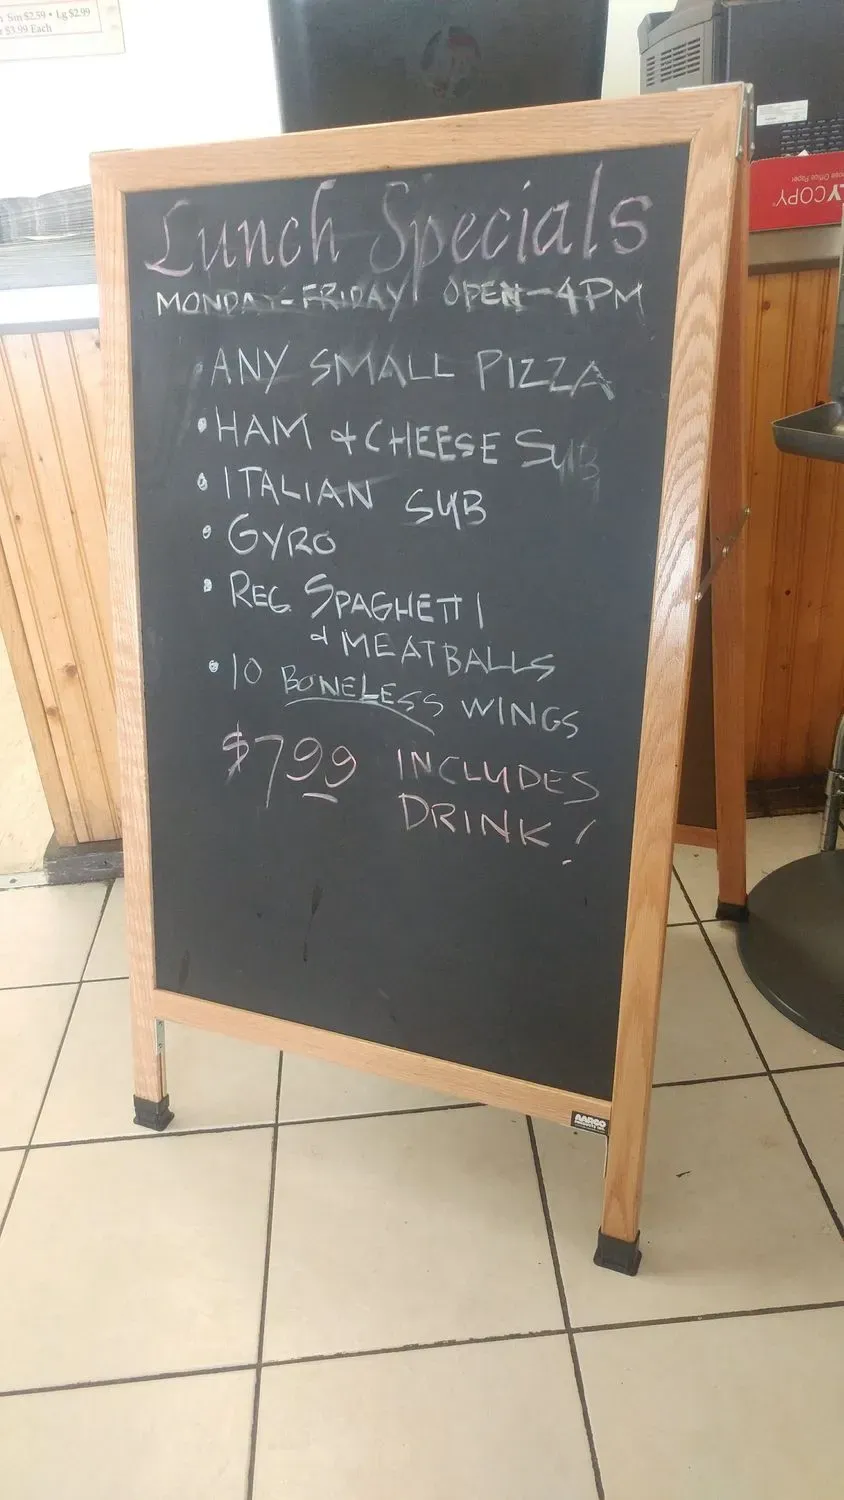 Sm $2.59 • Lg $2.99
$3.99 Each
Lunch Specials
MONDAY-FRIDAY OPEN-4PM
ANY SMALL PIZZA
• HAM & CHEESE SUB
• ITALIAN SUB
• GYRO
• REG. SPAGHETTI
& MEATBALLS
• 10 BONELESS WINGS
$7.99 INCLUDES
DRINK!
AARCO
COPY
Office Paper